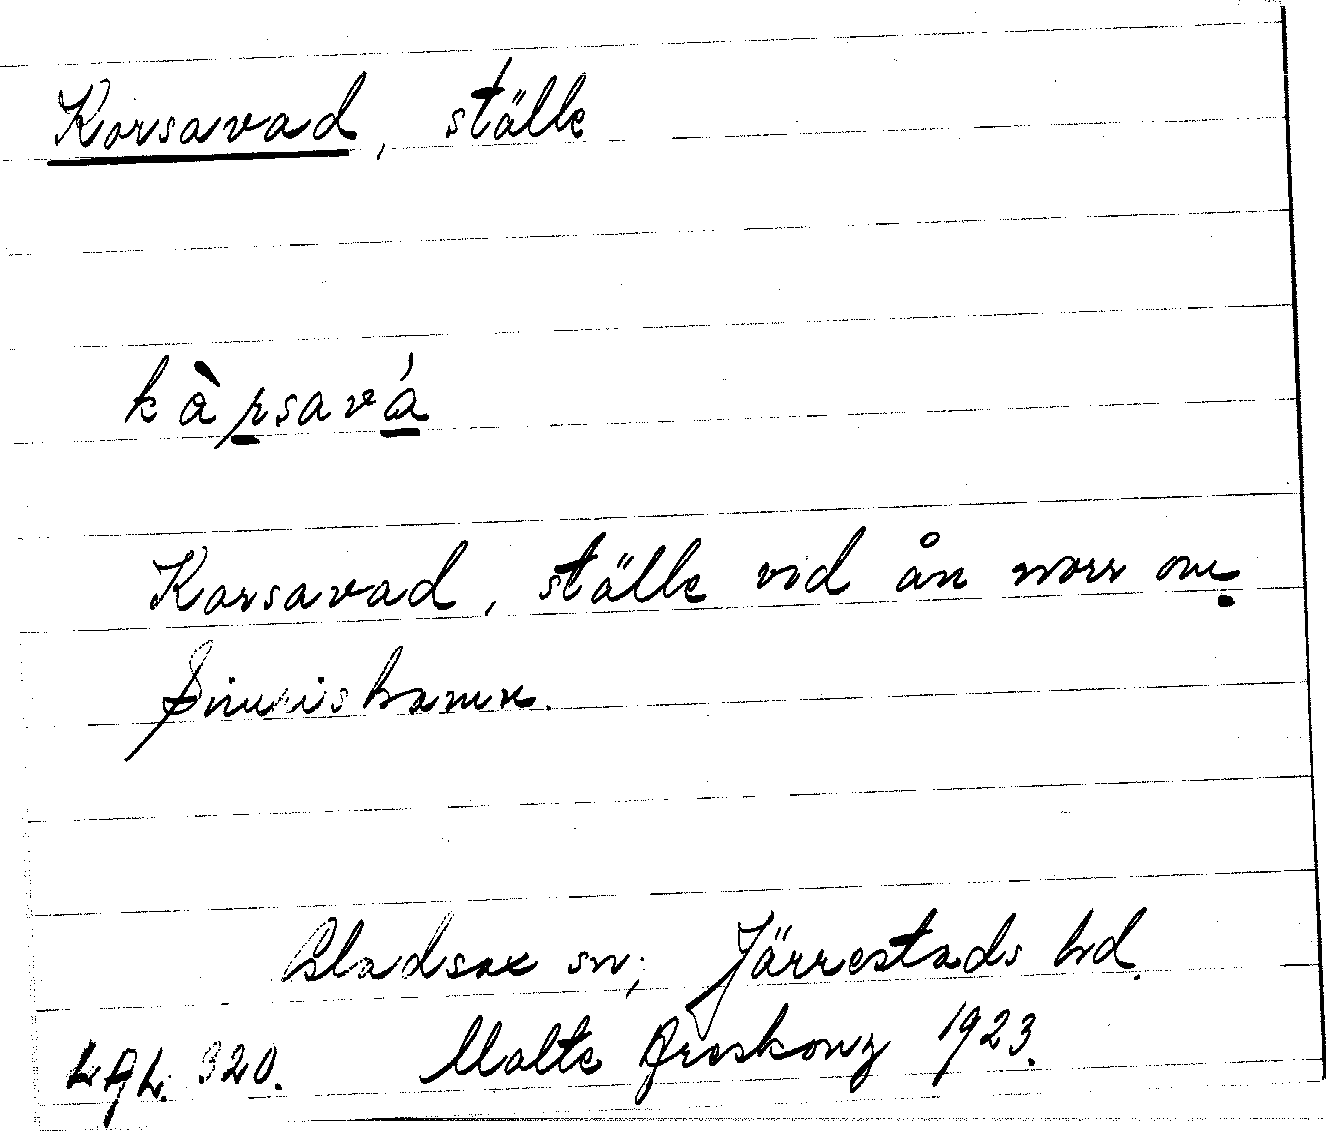 Korsavad, ställe
kàrsavá
Korsavad, ställe vid ån norr om
Simrishamn.
Gladsax sn; Järrestads hd.
320. Malte Areskoug 1923.